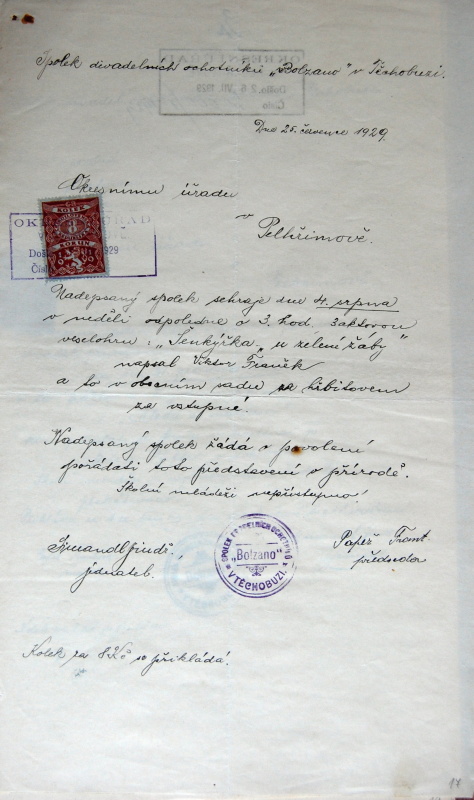 Spolek divadelních ochotníků „Bolzano" v Těchobuzi.
Dne 25. července 1929
Okresnímu úřadu
v
Pelhřimově.
KOLEK
8
KORUN
1919
OKRESNÍ ÚŘAD
Došlo 1929
Číslo
Nadepsaný spolek sehraje dne 4. srpna
v neděli odpoledne o 3. hod. 3aktovou
veselohru: „Šenkýřka „u zelení žáby"
napsal Viktor
a to v obecním sadu za hřbitovem
za vstupné.
Nadepsaný spolek žádá o povolení
pořádati toto představení v přírodě.
Školní mládeži nepřístupno!
Jindř.
jednatel.
SPOLEK DIVADELNÍCH OCHOTNÍKŮ
"Bolzano"
V TĚCHOBUZI.
Papež Frant.
předseda
Kolek za 8 Kč se přikládá.
17